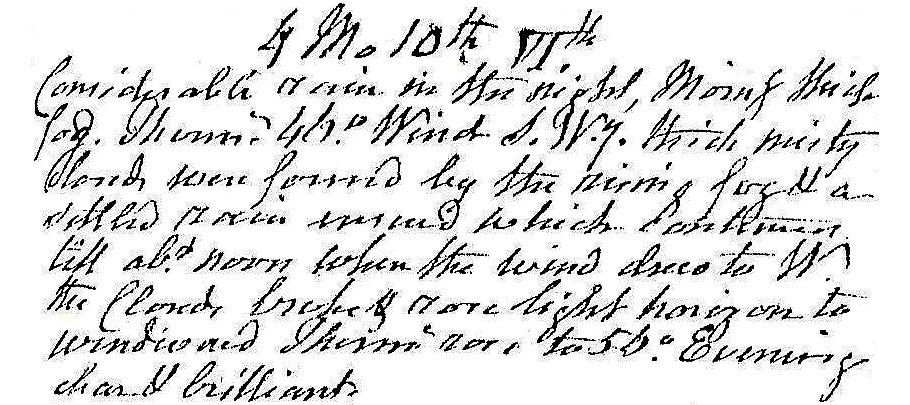 4 Mo 10th VIth
Considerable rain in the night, Morng thick
fog. Therm.r 41.° Wind S. W.y. thick misty
clouds were formed by the rising fog & a
settled rain ensued which continued
till ab.t noon when the wind drew to W.
the Clouds broke & rose light horizon to
windward Therm.r rose to 50.° Evening
clear & brilliant.